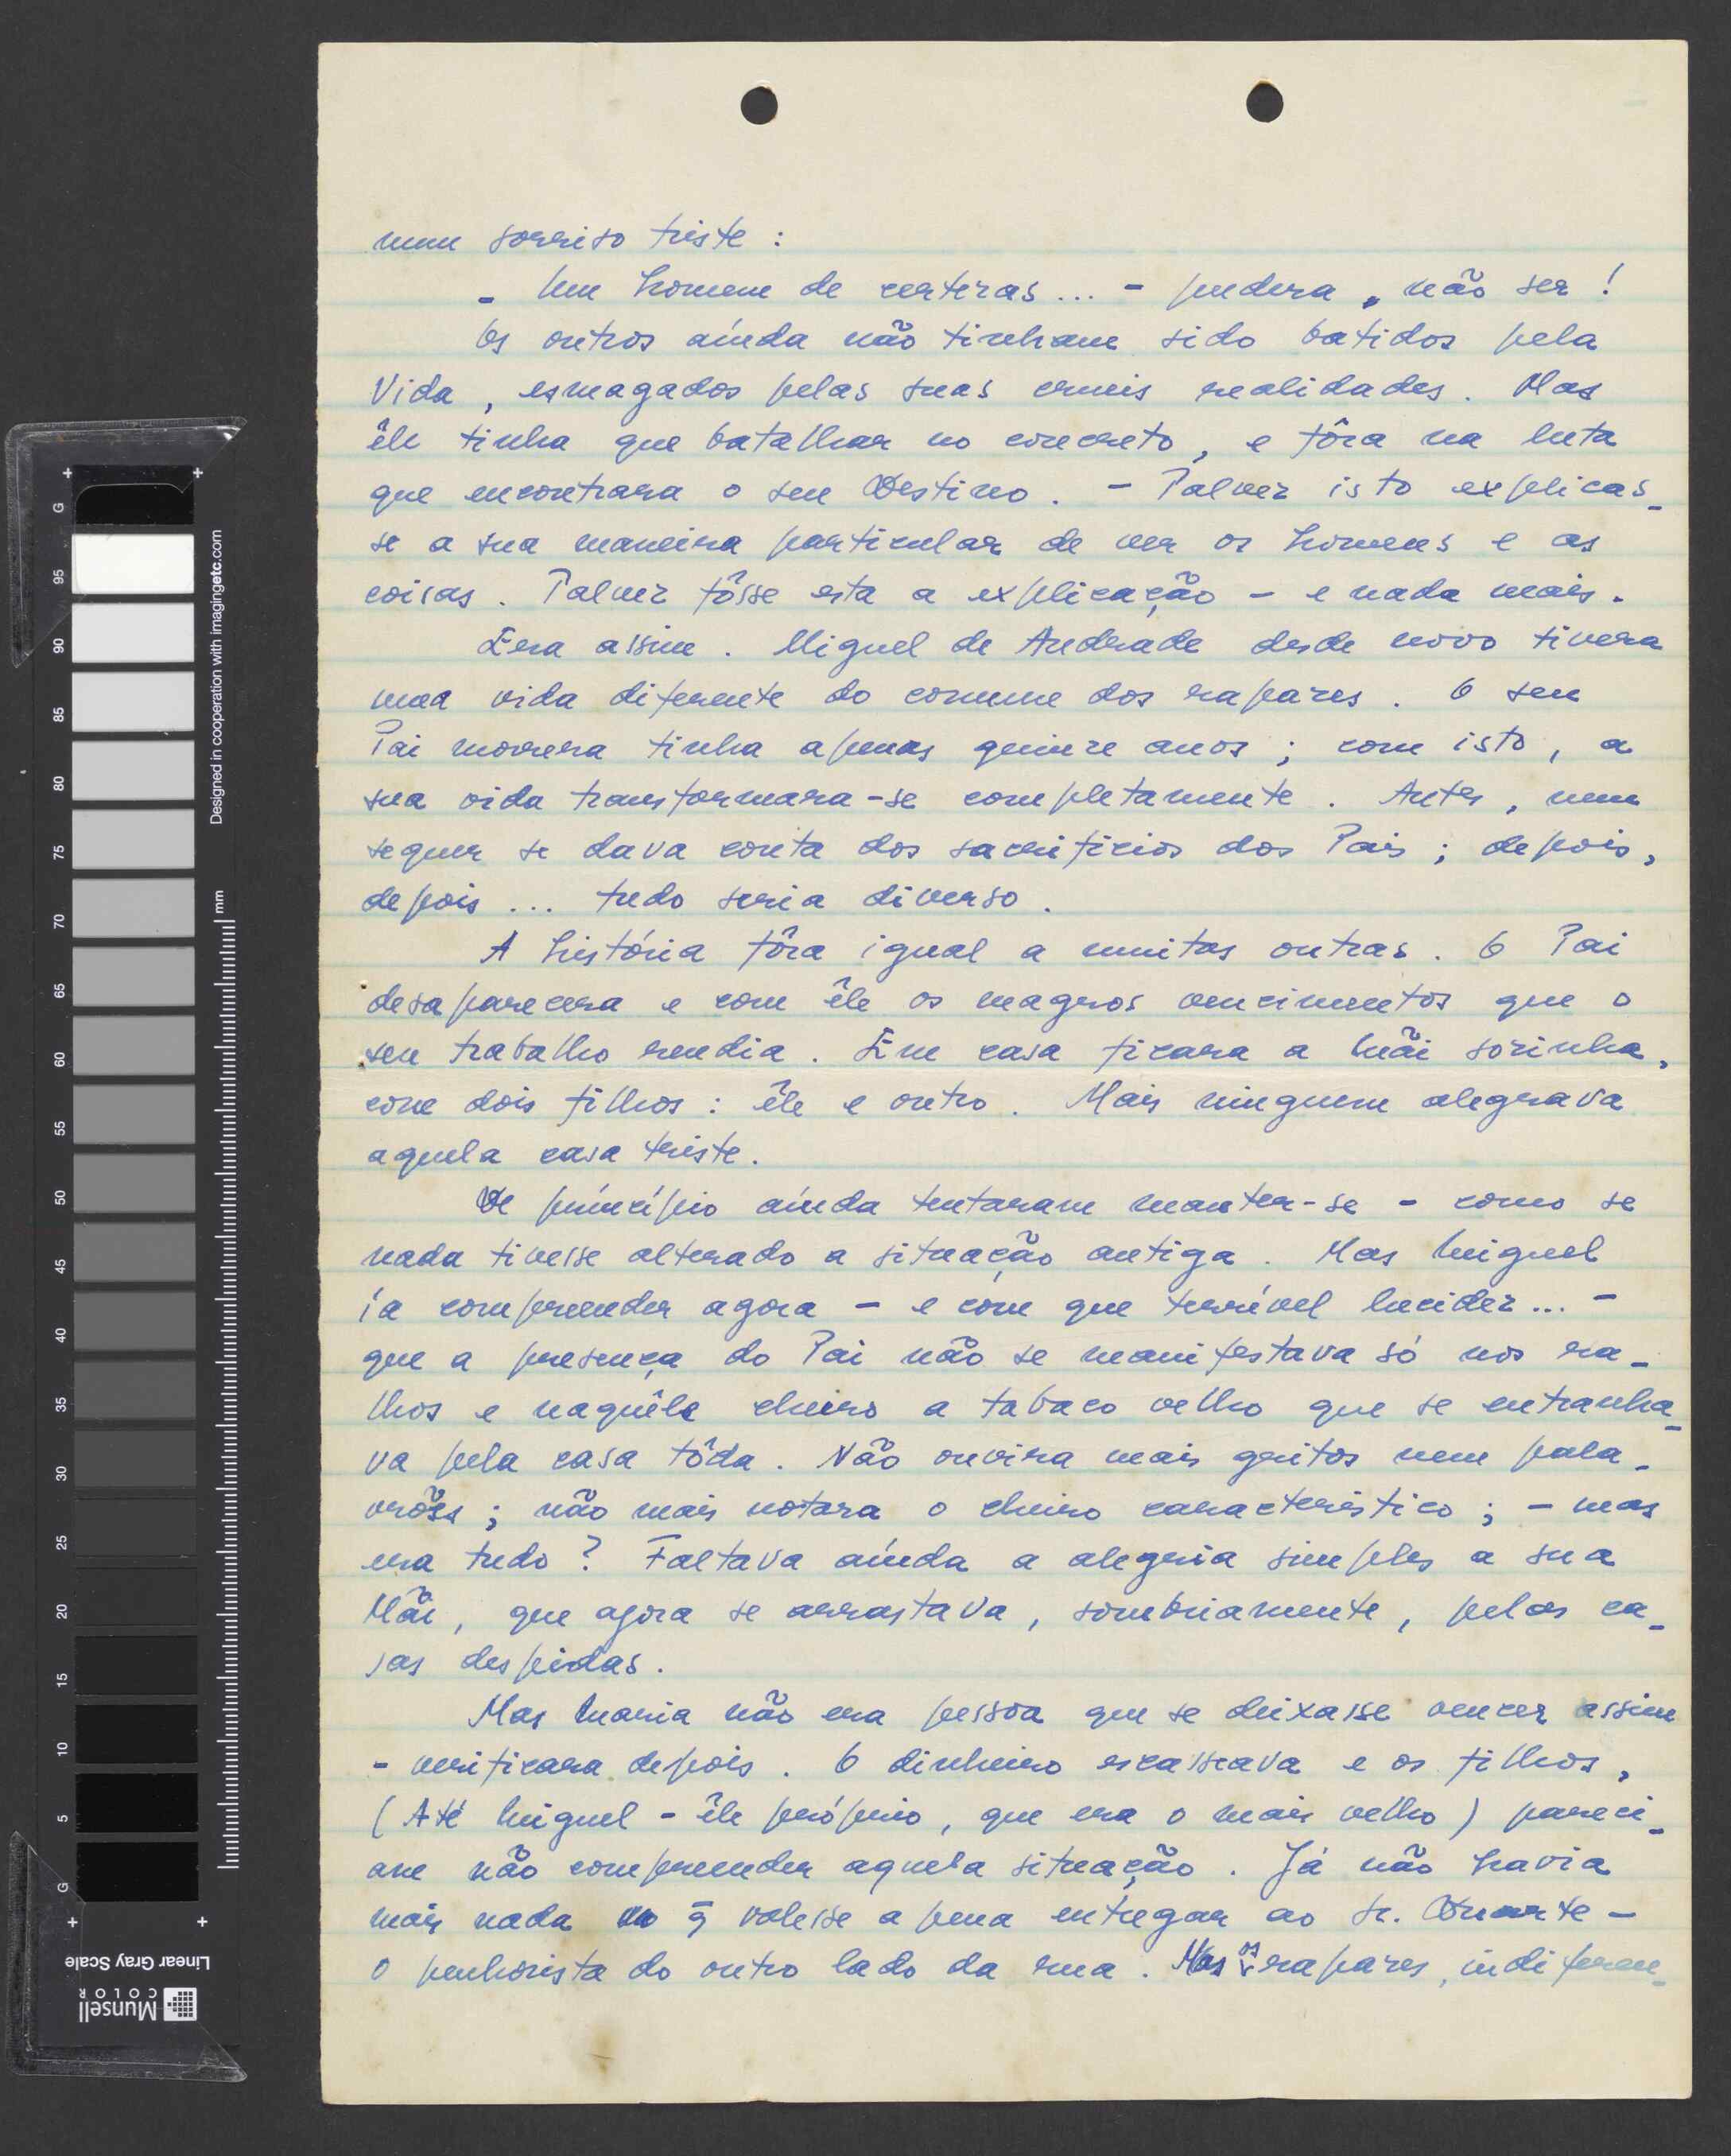 num sorriso triste:
- Um homem de certezas... - pudera, não ser!
Os outros aínda não tinham sido batidos pela
Vida, esmagados pelas suas crueis realidades. Mas
êle tinha que batalhar no concreto, e fôra na luta
que encontrara o seu Destino. - Talvez isto explicas-
se a sua maneira particular de ver os homens e as
coisas. Talvez fôsse esta a explicação - e nada mais.
Era assim. Miguel de Andrade desde novo tivera
uma vida diferente do comum dos rapazes. O seu
Pai morrera tinha apenas quinze anos; com isto, a
sua vida transformara-se completamente. Antes, nem
sequer se dava conta dos sacrifícios dos Pais; depois,
depois... tudo seria diverso.
A história fôra igual a muitas outras. O Pai
desaparecera e com êle os magros vencimentos que o
seu trabalho rendia. Em casa ficara a Mãi sòzinha,
com dois filhos: êle e outro. Mais ninguem alegrava
aquela casa triste.
De princípio aínda tentaram manter-se - como se
nada tivesse alterado a situação antiga. Mas Miguel
ía compreender agora - e com que terrível lucidez... -
que a presença do Pai não se manifestava só nos ra-
lhos e naquêle cheiro a tabaco velho que se entranha-
va pela casa tôda. Não ouvira mais gritos nem pala-
vrões; não mais notara o cheiro característico; - mas
era tudo? Faltava aínda a alegria simples a sua
Mãi, que agora se arrastava, sombriamente, pelas ca-
sas despidas.
Mas Maria não era pessoa que se deixasse vencer assim
- verificara depois. O dinheiro escasseava e os filhos,
(Até Miguel - êle próprio, que era o mais velho) pareci-
am não compreender aquela situação. Já não havia
mais nada q̄ valesse a pena entregar ao sr. Duarte -
o penhorista do outro lado da rua. Mas os rapazes, indiferen-
Munsell
COLOR
Linear Gray Scale
Designed in cooperation with imagingetc.com
mm
G
95
90
85
80
75
70
65
60
55
50
45
40
35
30
25
20
15
10
5
G